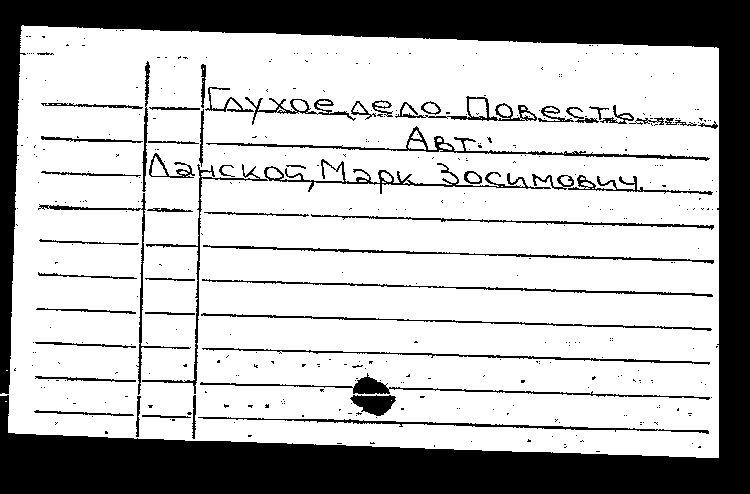 Глухое дело. Повесть.
Авт.:
Ланской, Марк Зосимович.